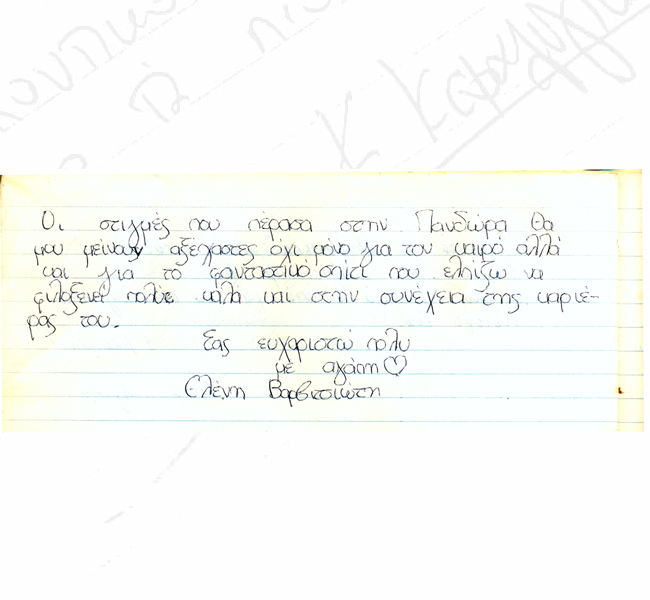 Οι στιγμές που πέρασα στην Πανδώρα θα
μου μείνουν αξέχαστες όχι μόνο για τον καιρό αλλά
και για το φανταστικό σπίτι που ελπίζω να
φιλοξενεί πολύ καλά και στην συνέχεια της καριέ-
ρας του.
Σας ευχαριστώ πολυ
με αγάπη♡
Ελένη Βαρβιτσιώτη